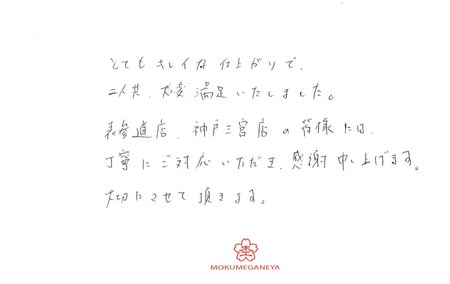 とてもキレイな仕上がりで、
二人共、大変満足いたしました。
表参道店、神戸三宮店の皆様には、
丁寧にご対応いただき、感謝申し上げます。
大切にさせて頂きます。
MOKUMEGANEYA